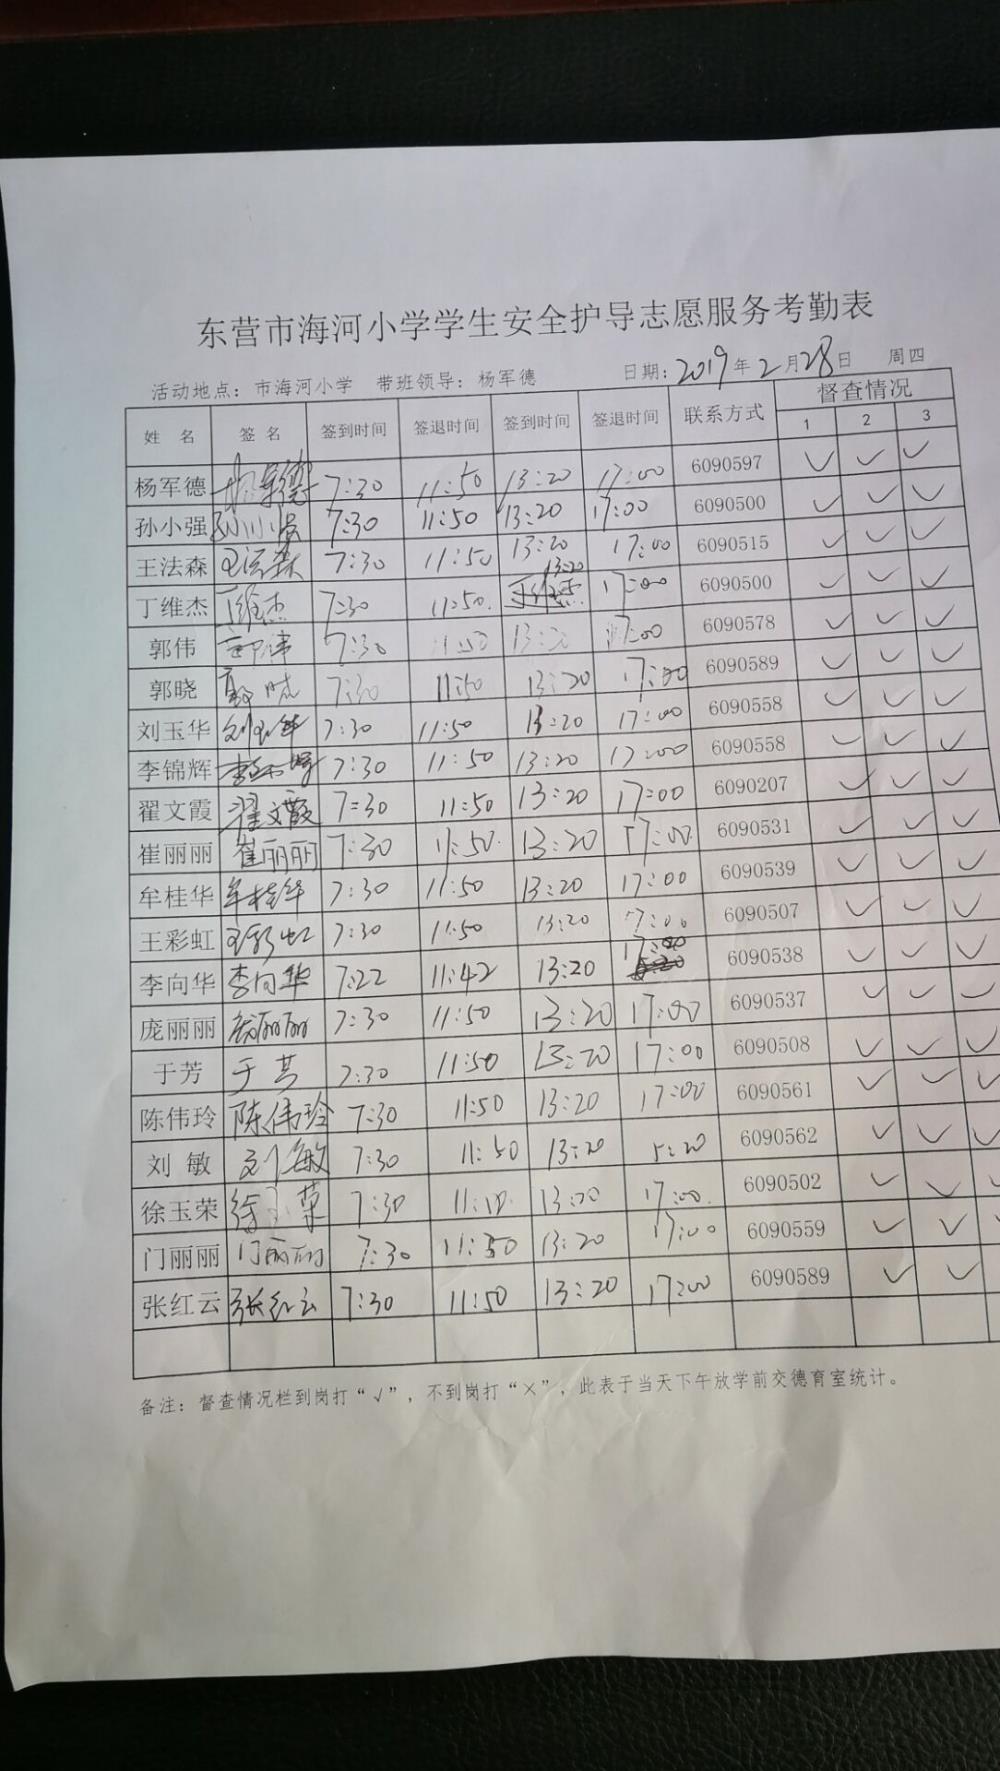 东营市海河小学学生安全护导志愿服务考勤表
活动地点：市海河小学 带班领导：杨军德 日期：2019年2月28日 周四
姓 名 签 名 签到时间 签退时间 签到时间 签退时间 联系方式 督查情况
1 2 3
杨军德 杨军德 7:30 11:50 13:20 17:00 6090597 ✓ ✓ ✓
孙小强 孙小强 7:30 11:50 13:20 17:00 6090500 ✓ ✓ ✓
王法森 王法森 7:30 11:50 13:20 17:00 6090515 ✓ ✓ ✓
丁维杰 丁维杰 7:30 11:50. 13:20 17:00 6090500 ✓ ✓ ✓
郭伟 郭伟 7:30 11:50 13:20 17:00 6090578 ✓ ✓ ✓
郭晓 郭晓 7:30 11:50 13:20 17:00 6090589 ✓ ✓ ✓
刘玉华 刘玉华 7:30 11:50 13:20 17:00 6090558 ✓ ✓ ✓
李锦辉 7:30 11:50 13:20 17:00 6090558 ✓ ✓ ✓
翟文霞 翟文霞 7:30 11:50 13:20 17:00 6090207 ✓ ✓ ✓
崔丽丽 崔丽丽 7:30 11:50. 13:20 17:00 6090531 ✓ ✓ ✓
牟桂华 牟桂华 7:30 11:50 13:20 17:00 6090539 ✓ ✓ ✓
王彩虹 王彩虹 7:30 11:50 13:20 17:00 6090507 ✓ ✓ ✓
李向华 李向华 7:22 11:42 13:20 17:00 6090538 ✓ ✓ ✓
庞丽丽 庞丽丽 7:30 11:50 13:20 17:00 6090537 ✓ ✓ ✓
于芳 于芳 7:30 11:50 13:20 17:00 6090508 ✓ ✓ ✓
陈伟玲 陈伟玲 7:30 11:50 13:20 17:00 6090561 ✓ ✓ ✓
刘 敏 刘敏 7:30 11:50 13:20 5:20 6090562 ✓ ✓ ✓
徐玉荣 徐玉荣 7:30 13:20 17:00. 6090502 ✓ ✓ ✓
门丽丽 门丽丽 7:30 11:50 13:20 17:00 6090559 ✓ ✓ ✓
张红云 张红云 7:30 11:50 13:20 17:00 6090589 ✓ ✓
备注：督查情况栏到岗打“√”，不到岗打“×”，此表于当天下午放学前交德育室统计。